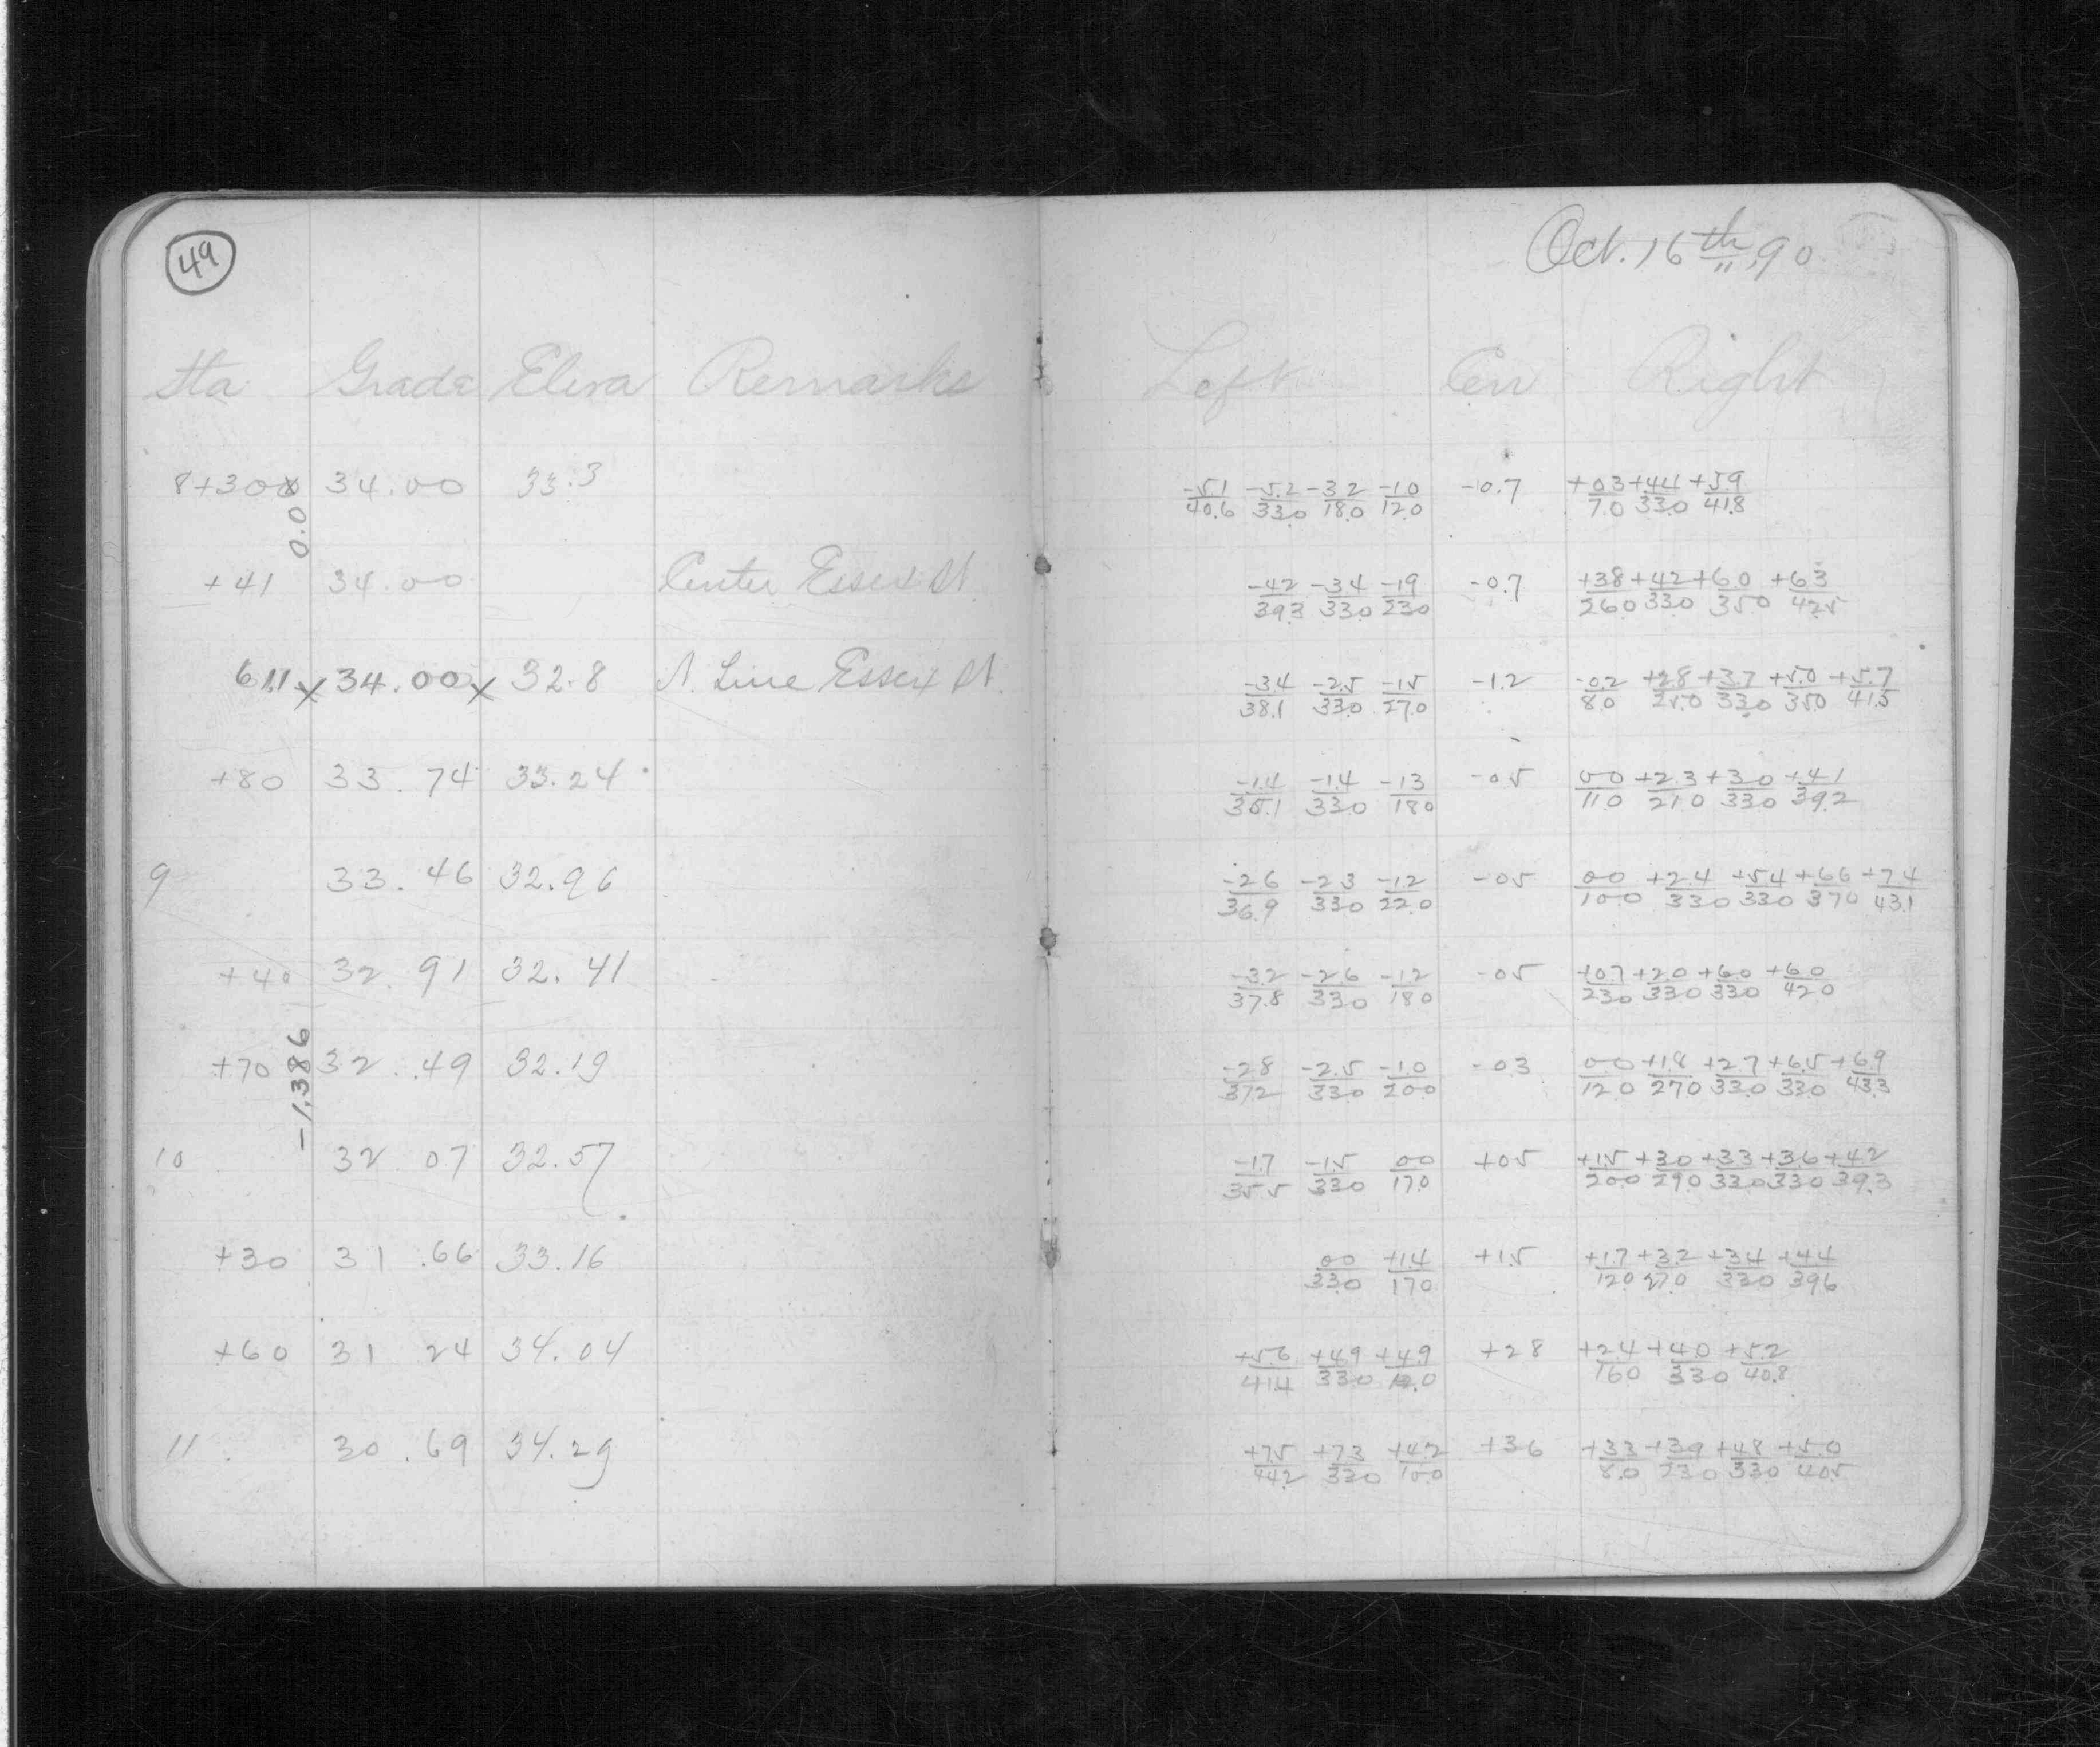 49
Oct. 16th, 90
Sta Grade Eleva Remarks Left Cen Right
8+30 34.00 33.3 -5.1/40.6 -5.2/33.0 -3.2/18.0 -1.0/12.0 -0.7 +0.3/7.0 +44/33.0 +5.9/41.8
0.0
+41 34.00 Center Essex St. -42/39.3 -3.4/330 -19/230 -0.7 +38/260 +42/330 +60/350 +63/425
61.1 x 34.00 x 32.8 N. Line Essex St. -34/38.1 -2.5/33.0 -15/27.0 -1.2 -0.2/8.0 +28/25.0 +3.7/33.0 +5.0/350 +5.7/41.5
+80 33.74 33.24 -1.4/35.1 -1.4/330 -13/180 -05 00/110 +2.3/21.0 +30/330 +41/39.2
9 33.46 32.96 -26/36.9 -23/330 -12/22.0 -05 00/100 +2.4/330 +54/330 +66/370 +74/43.1
+40 32.91 32.41 -32/37.8 -26/330 -12/180 -05 +07/230 +20/330 +60/330 +60/420
+70 32.49 32.19 -28/372 -2.5/330 -1.0/200 -03 00/120 +18/270 +27/330 +65/330 +69/433
-1.386
10 32 07 32.57 -17/355 -15/330 00/170 +05 +15/200 +30/290 +33/330 +36/330 +42/39.3
+30 31.66 33.16 00/330 +14/170 +15 +17/120 +32/270 +34/330 +44/396
+60 31 24 34.04 +56/414 +49/330 +49 +28 +24/160 +40/330 +52/40.8
11 30.69 34.29 +75/442 +73/330 +42/100 +36 +33/8.0 +39/230 +48/330 +50/405